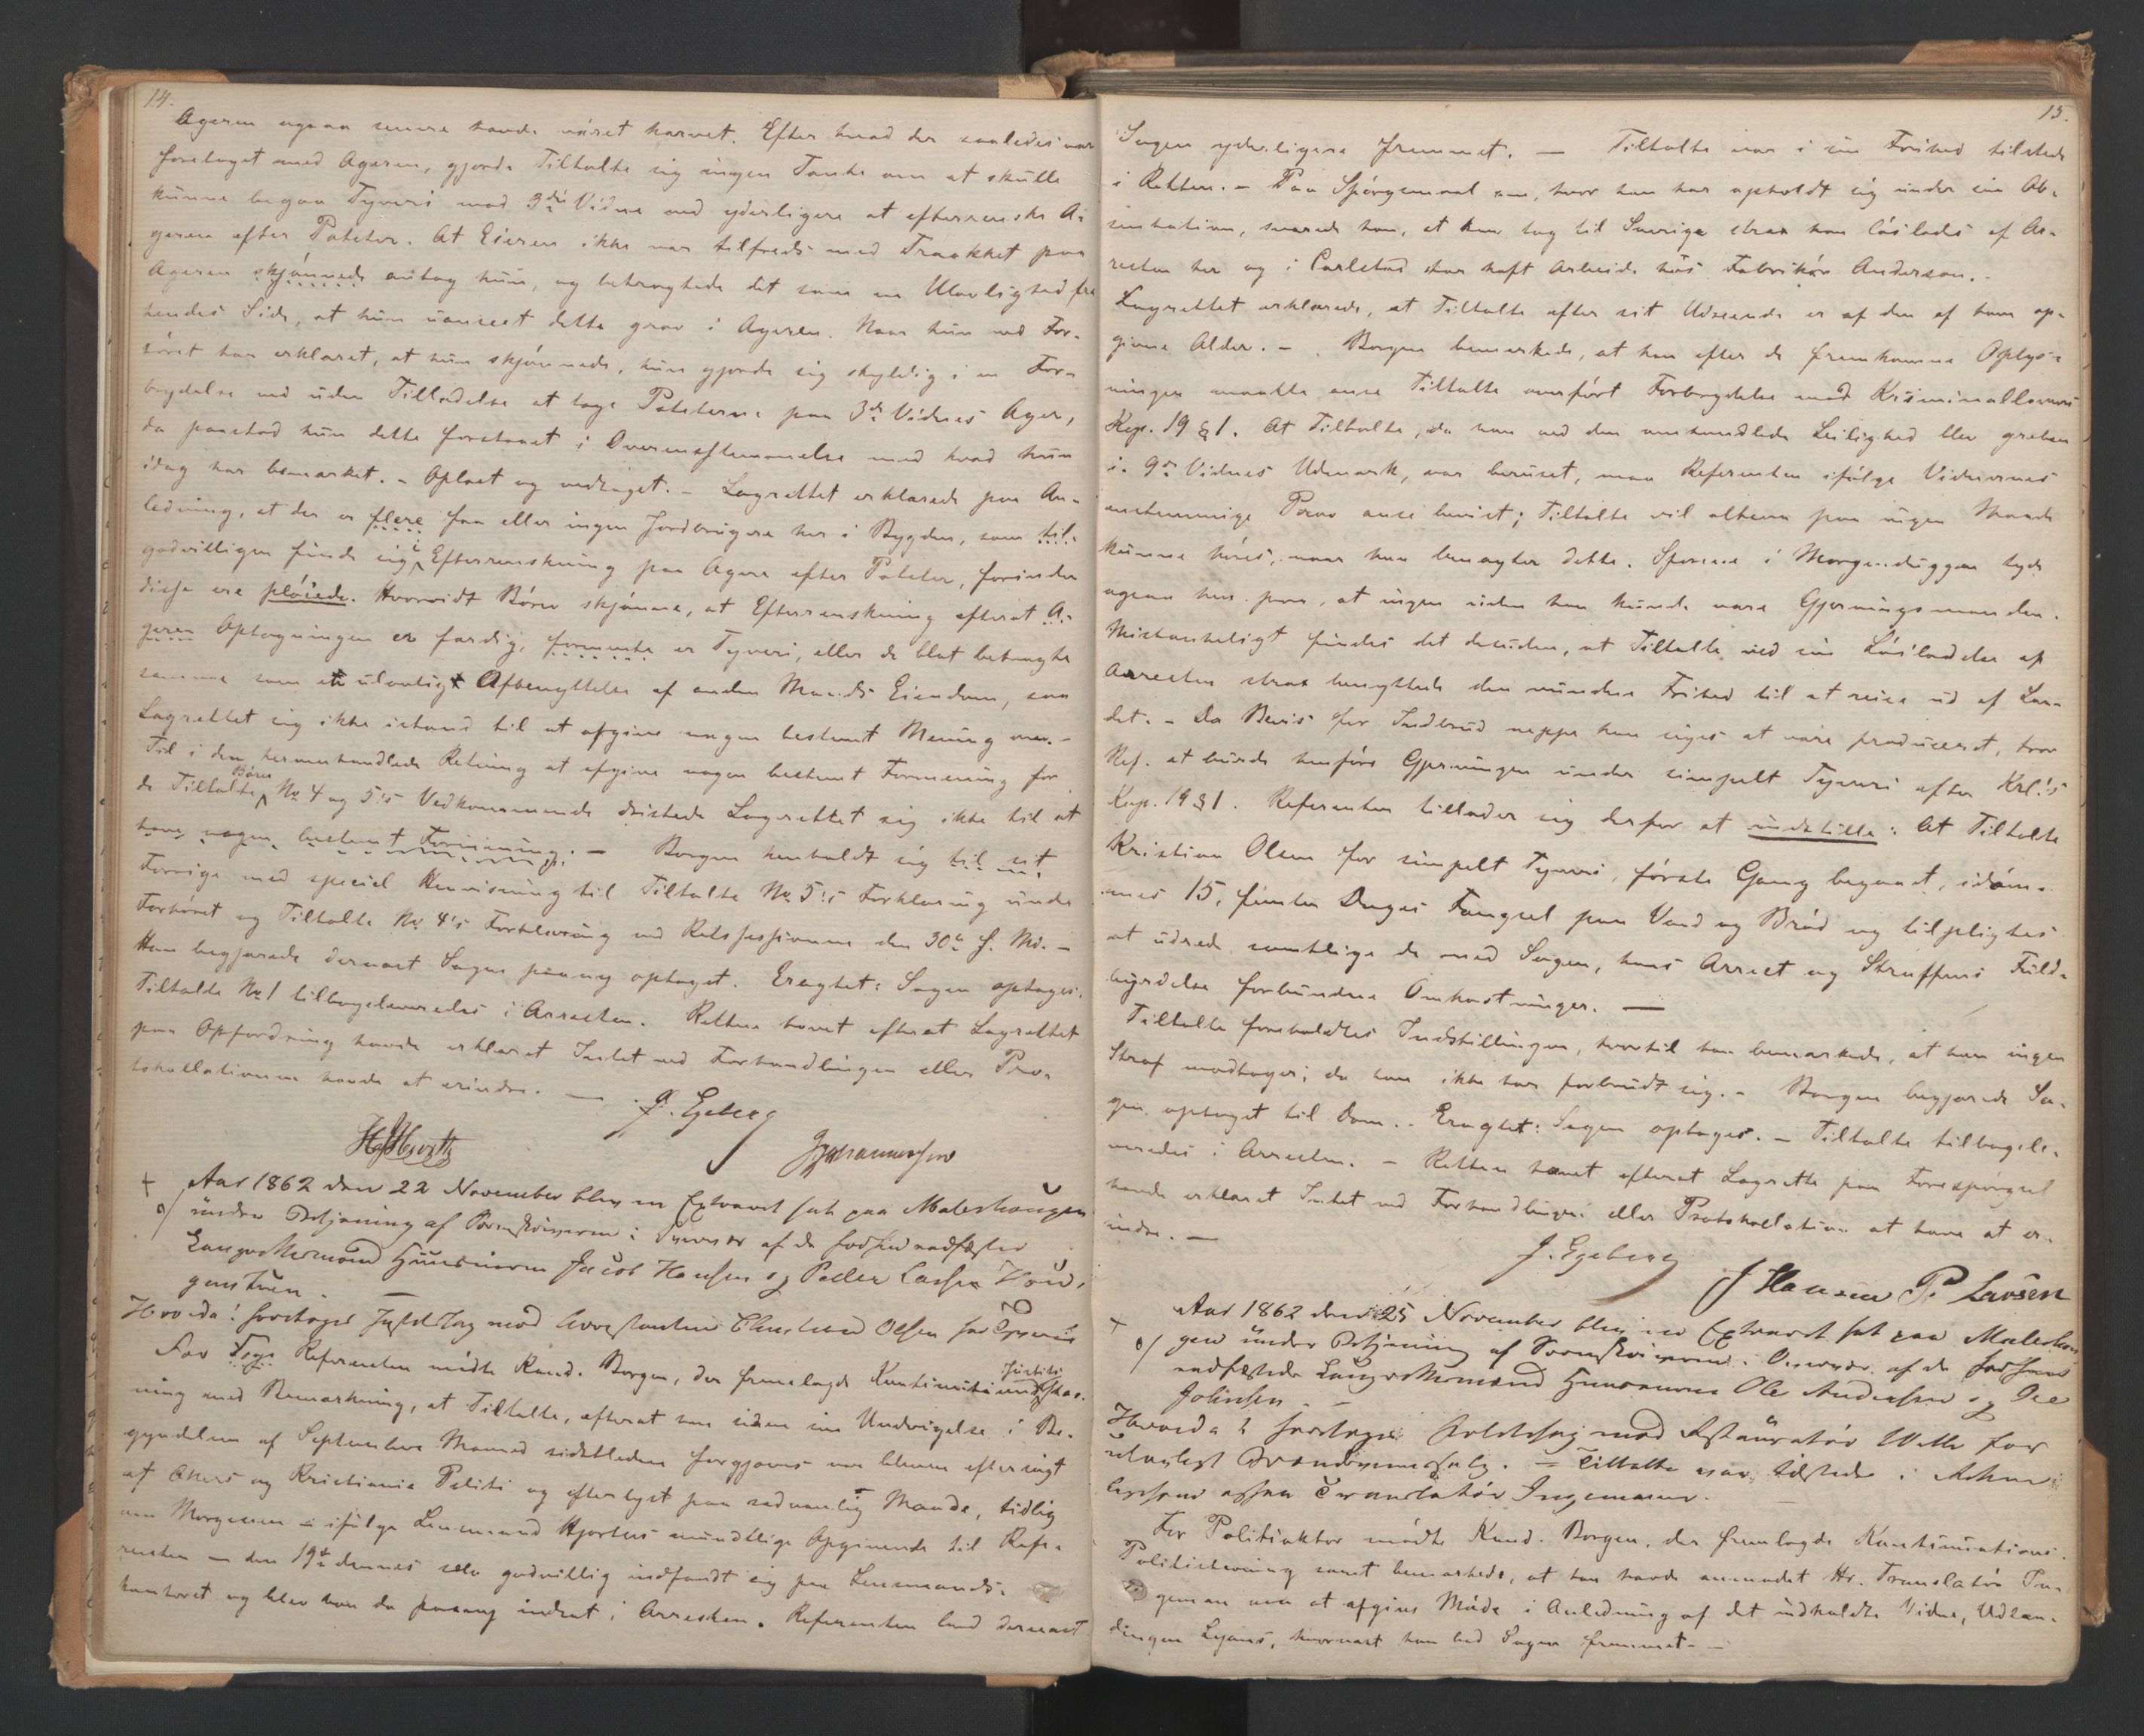 14.
Ageren ogsaa senere havde været harvet. Efter hvad der saaledes var
foretaget med Ageren, gjorde Tiltalte sig ingen Tanke om at skulle
kunne begaa Tyveri mod 3die Vidne ved yderligere at efterrenske A-
geren efter Poteter. At Eieren ikke var tilfreds med Traakket paa
Ageren skjønnede antog hun, og betragtede det som en Ulovlighed fra
hendes Side, at hun uanseet dette grov i Ageren. Naar hun ved For-
høret har erklæret, at hun skjønnede, hun gjorde sig skyldig i en For-
brydelse ved uden Tilladelse at tage Poteterne paa 3die Vidnes Ager,
da paastod hun dette forstaaet i Overensstemmelse med hvad hun
idag har bemærket. - Oplæst og vedtaget. - Lagrettet erklærede paa An-
ledning, at der er flere faa eller ingen Jordbrugere her i Bygden, som til-
godvilligen finde sig i Efterrenskning paa Agere efter Poteter, forinden
disse ere pløiede. Hvorvidt Børn skjønne, at Efterrenskning efterat A-
geren Optagningen er færdig, formente er Tyveri, eller de blot betragte
samme som et ulovligt Afbenyttelse af anden Mands Eiendom, saa
Lagrettet sig ikke istand til at afgive nogen bestemt Mening om. -
Til i den heromhandlede Retning at afgive nogen bestemt Formening for
de Tiltalte Børn No 4 og 5's Vedkommende dristede Lagrettet sig ikke til at
have nogen bestemt Formening. - Borgen henholdt sig til sit
Forrige med speciel Henvisning til Tiltalte No 5's Forklaring under
Forhøret og Tiltalte No 4's Forklaring ved Retssessionen den 30te f. Md. -
Han begjærede dernæst Sagen paany optaget. Eragtet: Sagen optages.
Tiltalte No 1 tilbageleveredes i Arresten. Retten hævet efterat Lagrettet
paa Opfordring havde erklæret Intet ved Forhandlingen eller Pro-
tokollationen havde at erindre. - J. Egeberg
Johannessen
Aar 1862 den 22 November blev en Extraret sat paa Maleshaugen
under Betjening af Sorenskriveren i Overvær af de forhen edfæstede
Laugrettesmænd Huusmænd Jacob Hansen og Peder Larsen Houg-
genstuen. -
Hvorda! foretoges Justitssag mod Arrestanten Christian Olsen for Tyveri
For Sage Referenten mødte Kand. Borgen, der fremlagde Kontinuations Justitsstæv-
ning med Bemærkning, at Tiltalte, efterat han siden sin Undvigelse i Be-
gyndelsen af September Maaned sidstleden forgjæves var bleven eftersøgt
af Akers og Kristiania Politi og efterlyst paa sædvanlig Maade, tidlig
om Morgenen - ifølge Lensmand Hjorths mundtlige Opgivende til Refe-
renten - den 19de dennes selv godvillig indfandt sig paa Lensmands-
kontoret og blev han da paany indsat i Arresten. Referenten lod dernæst
15.
Sagen yderligere fremmet. - Tiltalte var i sin Frihed tilstede
i Retten. - Paa Spørgsmaal om, hvor han har opholdt sig under sin Ab-
sentation, svarede han, at han tog til Sverige strax han løslodes af Ar-
resten her og i Carlstad har haft Arbeide hos Fabrikør Anderson. -
Lagrettet erklærede, at Tiltalte efter sit Udseende er af den af ham op-
givne Alder. - Borgen bemærkede, at han efter de fremkomne Oplys-
ninger maatte anse Tiltalte overført Forbrydelse mod Kriminallovens
Kap. 19 § 1. At Tiltalte, da han ved den omhandlede Leilighed blev greben
i 9de Vidnes Udmark, var beruset, maa Referenten ifølge Vidnernes
enstemmige Prov anse bevist; Tiltalte vil altsaa paa ingen Maade
kunne høres, naar han benægter dette. Sporene i Morgenduggen tyde
ogsaa hen paa, at ingen uden han kunde være Gjerningsmanden.
Mistænkeligt findes det desuden, at Tiltalte ved sin Løsladelse af
Arresten strax benyttede den vundne Frihed til at reise ud af Lan-
det. - Da Bevis for Indbrud neppe kan siges at være produceret, tror
Ref. at burde henføre Gjerningen under simpelt Tyveri efter Krl's
Kap. 19 § 1. Referenten tillader sig derfor at indstille: At Tiltalte
Kristian Olsen for simpelt Tyveri, første Gang begaaet, idøm-
mes 15, femten Dages Fængsel paa Vand og Brød og tilpligtes
at udrede samtlige de med Sagen, hans Arrest og Straffens Fuld-
byrdelse forbundne Omkostninger. -
Tiltalte foreholdtes Indstillingen, hvortil han bemærkede, at han ingen
Straf modtager; da han ikke har forbrudt sig. - Borgen begjærede Sa-
gen optaget til Dom. - Eragtet: Sagen optages. - Tiltalte tilbagele-
veredes i Arresten. - Retten hævet efterat Lagrette paa Forespørgsel
havde erklæret Intet ved Forhandlingen eller Protokollation at have at er-
indre. -
J. Egeberg
J Hansen P. Larsen
Aar 1862 den 25 November blev en Extraret sat paa Maleshau-
gen under Betjening af Sorenskriveren i Overvær af de forhen
edfæstede Laugrettesmænd Huusmænd Ole Andersen og
Johnsen. -
Hvorda! foretoges Politisag mod Restauratør Wille for
ulovligt Brændevinssalg. - Tiltalte var tilstede i Retten
ligesom ogsaa Translatør Ingemann.
For Politiaktor mødte Kand. Borgen, der fremlagde Kontinuations-
Politistevning samt bemærkede, at han havde anmodet Hr. Translatør In-
geman om at afgive Møde i Anledning af det udeholdte Vidne, Udlæn-
dingen Lyons, hvornæst han lod Sagen fremmet. -